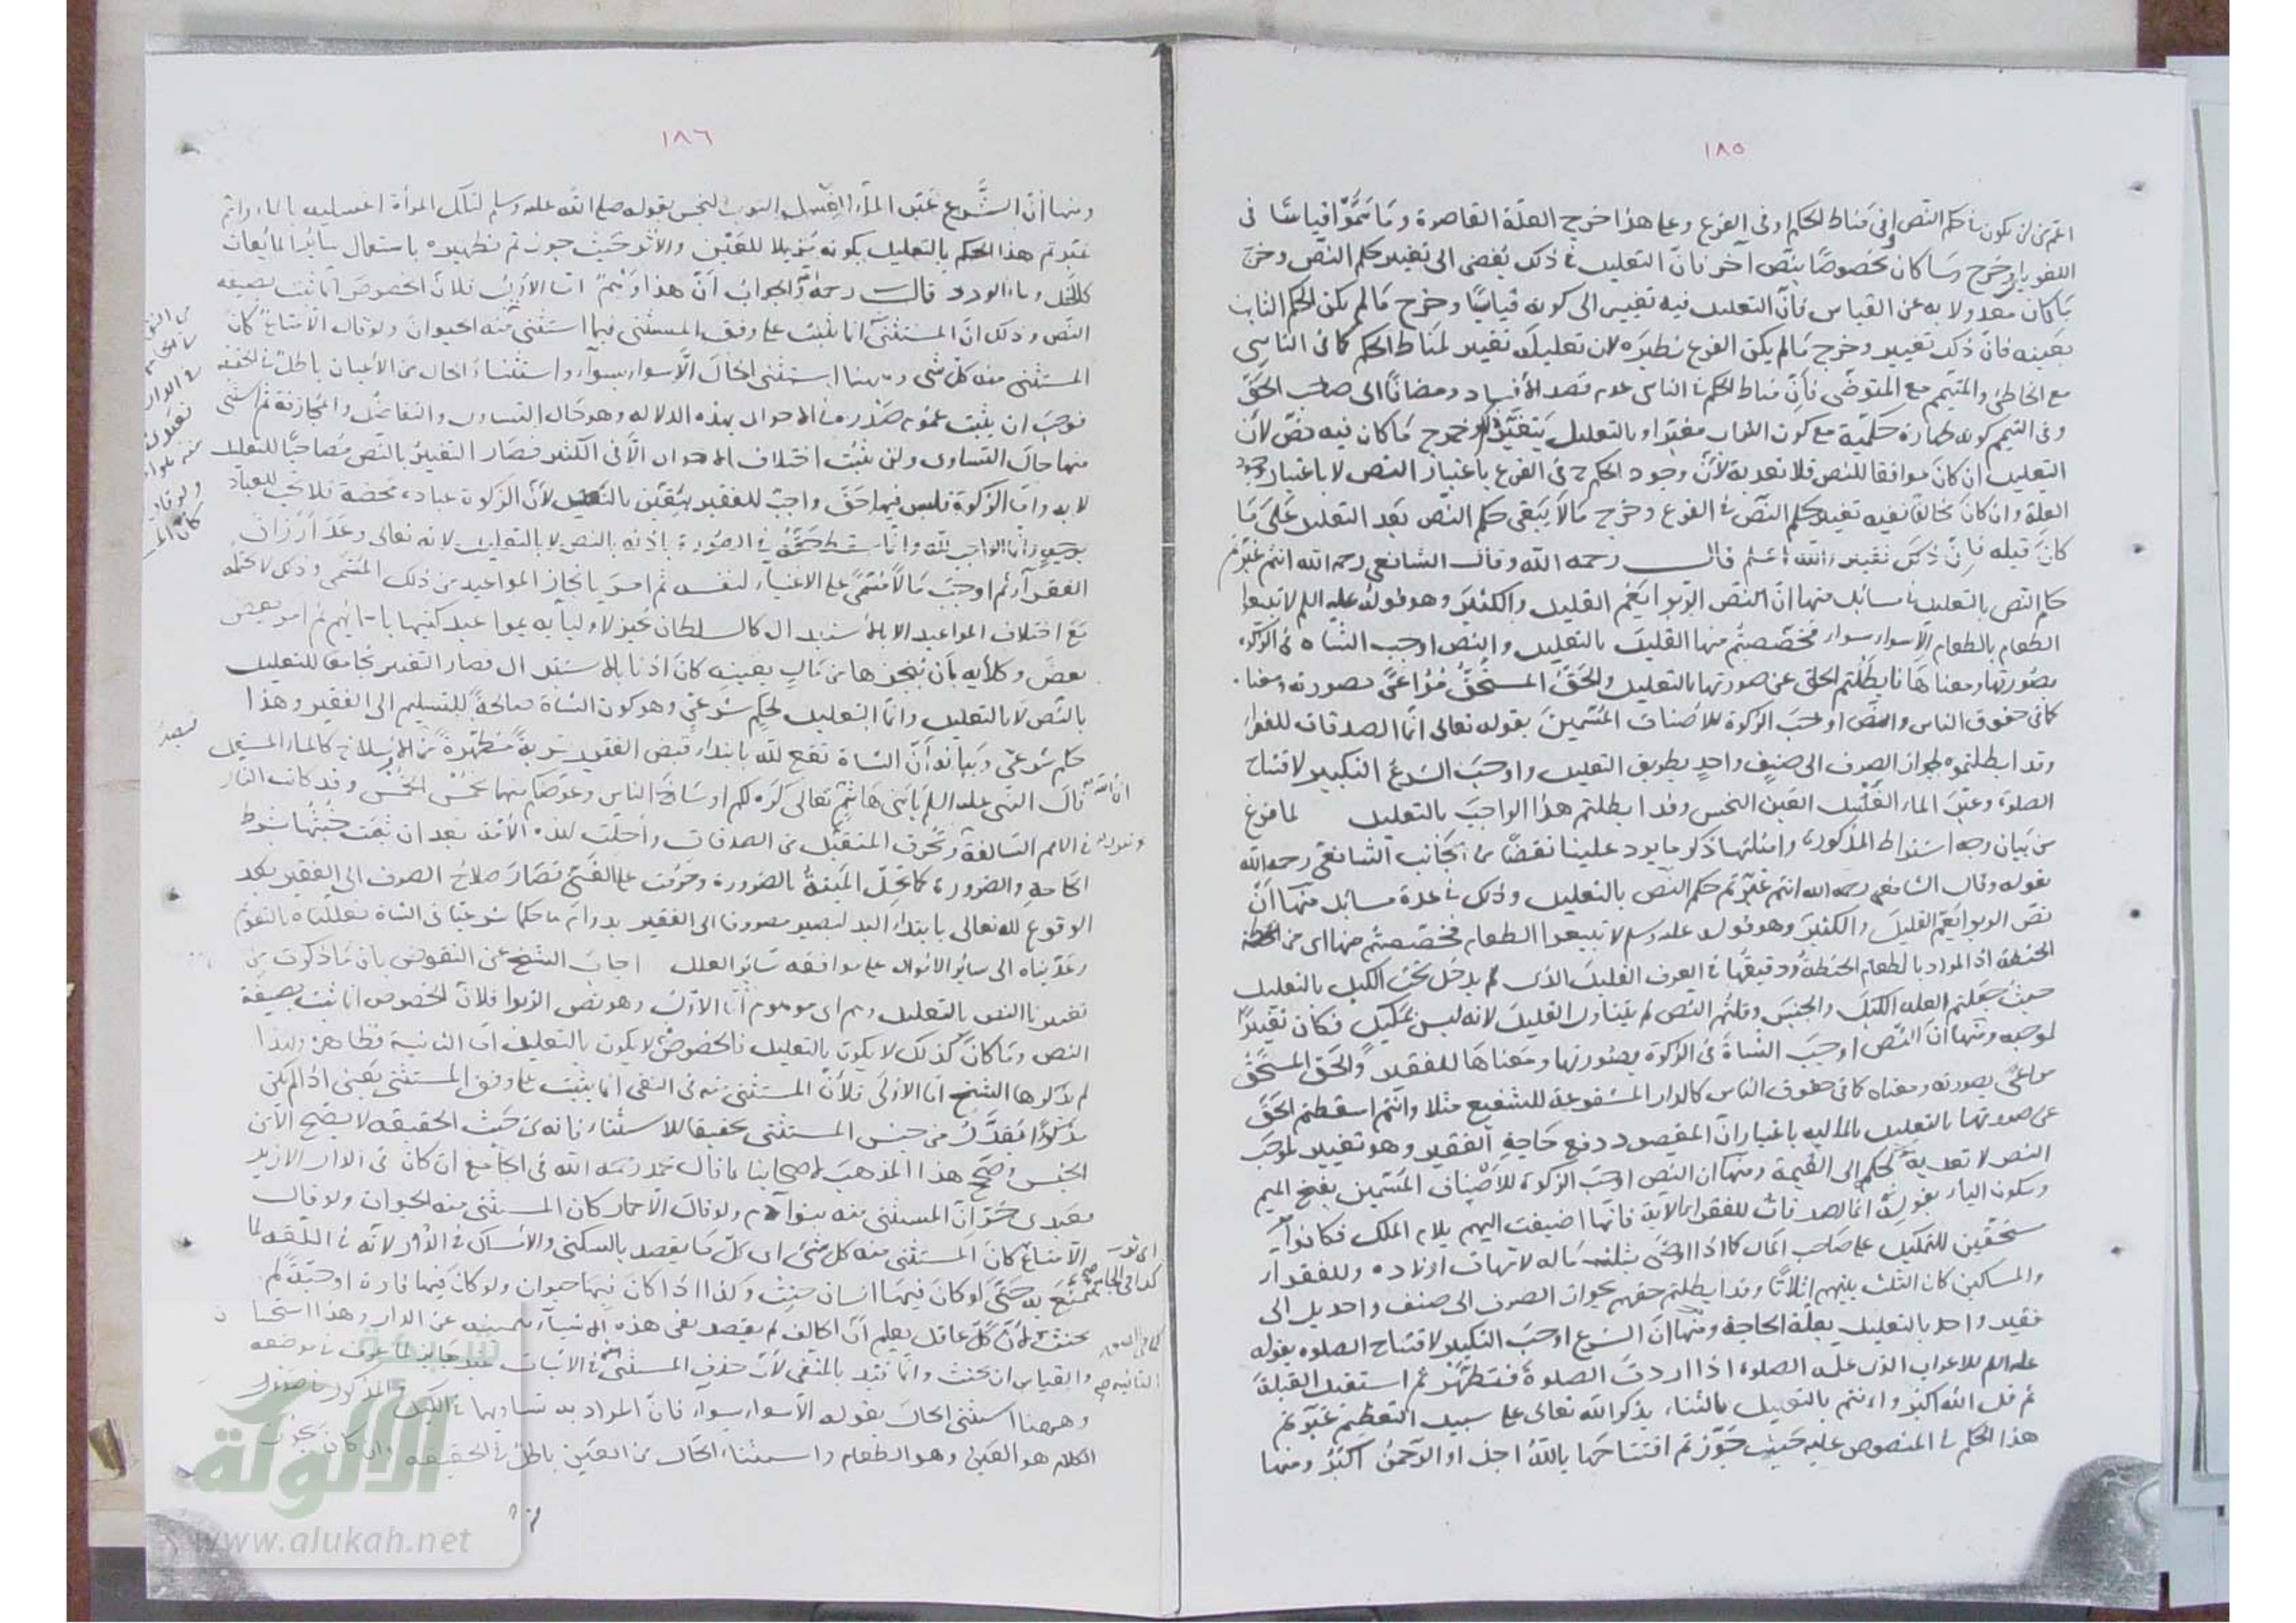 ١٨٥
اعم من ان يكون حكم النص او في مناط الحكم او في الفرع وعلى هذا خرج العلة القاصرة وما سموا قياسا في
اللغويات وخرج ما كان مخصوصا بنص آخر فان التعليل في ذلك يفضي الى تغيير حكم النص وخرج
ما كان معدولا به عن القياس فان التعليل فيه تغيير الى كونه قياسيا وخرج ما لم يكن الحكم الثابت
بعينه فان ذلك تغيير وخرج ما لم يكن الفرع نظيره لان تعليله تغيير لمناط الحكم كما في الناسي
مع الخاطئ والمتيمم مع المتوضي فان مناط الحكم في الناسي عدم قصد الافساد ومضافا الى صاحب الحق
وفي التيمم كونه طهارة حكمية مع كون التراب مغبرا وبالتعليل يتغير وخرج ما كان فيه نص لان
التعليل ان كان موافقا للنص فلا تعدية لان وجود الحكم في الفرع باعتبار النص لا باعتبار وجود
العلة وان كان مخالفا ففيه تغيير حكم النص في الفرع وخرج ما لا يبقى حكم النص بعد التعليل على ما
كان قبله فان ذلك تغيير والله اعلم قال رحمه الله وقال الشافعي رحمه الله انتم غيرتم
حكم النص بالتعليل في مسائل منها ان النص الربوا يعم القليل والكثير وهو قوله عليه السلم لا تبيعوا
الطعام بالطعام الا سواء بسواء فخصصتم منها القليل بالتعليل والنص اوجب الشاة في الزكوة
بصورتها ومعناها فابطلتم الحق عن صورتها بالتعليل والحق المستحق مراعى بصورته ومعناه
كما في حقوق الناس والنص اوجب الزكوة للاصناف المسمين بقوله تعالى انما الصدقات للفقراء
وقد ابطلتموه بجواز الصرف الى صنف واحد بطريق التعليل واوجب الشرع التكبير لافتتاح
الصلوة وعين الماء لغسل العين النجس وقد ابطلتم هذا الواجب بالتعليل لما فرغ
من بيان وجه اشتراط المذكورة وامثلتها ذكر ما يرد علينا نقضا من جانب الشافعي رحمه الله
بقوله وقال الشافعي رحمه الله انتم غيرتم حكم النص بالتعليل وذلك في عدة مسائل منها ان
نص الربوا يعم القليل والكثير وهو قوله عليه وسلم لا تبيعوا الطعام فخصصتم منها اى من
الحنطة اذ المراد بالطعام الحنطة ودقيقها في العرف القليل الذى لم يدخل تحت الكيل بالتعليل
حيث جعلتم العلة الكيل والجنس وقلتم النص لم يتناول القليل لانه ليس بمكيل فكان تغييرا
لموجبه ومنها ان النص اوجب الشاة في الزكوة بصورتها ومعناها للفقير والحق المستحق
مراعى بصورته ومعناه كما في حقوق الناس كالدار المشفوعة للشفيع مثلا وانتم اسقطتم الحق
عن صورتها بالتعليل بالمالية باعتبار ان المقصود دفع حاجة الفقير وهو تغيير لموجب
النص لا تعدية لحكم الى القيمة ومنها ان النص اوجب الزكوة للاصناف المسمين بفتح الميم
وسكون الياء بقوله انما الصدقات للفقراء الآية فانها اضيفت اليهم بلام الملك فكانوا
مستحقين للتمليك على صاحب المال كما اذا اوصى بثلث ماله لامهات اولاده وللفقراء
والمساكين كان الثلث بينهم اثلاثا وقد ابطلتم حقهم بجواز الصرف الى صنف واحد بل الى
فقير واحد بالتعليل بعلة الحاجة ومنها ان الشرع اوجب التكبير لافتتاح الصلوة بقوله
عليه السلم للاعرابي الذى علمه الصلوة اذا اردت الصلوة فتطهر ثم استقبل القبلة
ثم قل الله اكبر وانتم بالتعليل بالثناء بذكر الله تعالى على سبيل التعظيم غيرتم
هذا الحكم في المنصوص عليه حيث جوزتم افتتاحها بالله اجل او الرحمن اكبر ومنها
١٨٦
ومنها ان الشرع عين الماء لغسل الثوب النجس بقوله صلى الله عليه وسلم لتلك المرأة اغسليه بالماء وانتم
غيرتم هذا الحكم بالتعليل بكونه مزيلا للعين والاثر حيث جوزتم تطهيره باستعمال سائر المائعات
كالخل وماء الورد قال رحمه الله والجواب ان هذا وهم اما الاول فلان الخصوص انما ثبت بصيغة
النص وذلك ان المستثنى انما يثبت على وفق المستثنى فيما استثنى منه الحيوان ولو قال الا متاع كان
المستثنى منه كل شى وههنا استثنى الحال الا سواء بسواء واستثناء الحال من الاعيان باطل في الحقيقة
فوجب ان يثبت عموم صدره في الاحوال بهذه الدلالة وهو حال التساوى والتفاضل والمجازفة ثم استثنى
منها حال التساوى ولن يثبت اختلاف الاحوال الا في الكثير فصار التغيير بالنص مصاحبا للتعليل
لا به واما الزكوة فليس فيها حق واجب للفقير يتغير بالتعليل لان الزكوة عبادة محضة فلا تجب للعباد
بوجه وانما الواجب لله وانما سقط حقه في الصورة باذنه بالنص لا بالتعليل لانه تعالى وعد ارزاق
الفقراء ثم اوجب مالا مسمى على الاغنياء لنفسه ثم امر بانجاز المواعيد من ذلك المسمى وذلك لا يحتمله
مع اختلاف المواعيد الا بالاستبدال كالسلطان يجيز لاوليائه بمواعيد كتبها باسمائهم ثم امر بعض
بعض وكلائه بان ينجزها من مال بعينه كان اذنا بالاستبدال فصار التغيير مجامعا للتعليل
بالنص لا بالتعليل وانما التعليل لحكم شرعي وهو كون الشاة صالحة للتسليم الى الفقير وهذا
حكم شرعي وبيانه ان الشاة تقع لله بابتداء قبض الفقير قربة مطهرة من الاوساخ كالماء المستعمل
قال النبي عليه السلم يا بنى هاشم ان الله تعالى كره لكم اوساخ الناس وعوضكم منها بخمس الخمس وقد كانت النار
في الامم السالفة تحرق المتقبل من الصدقات واحلت لهذه الامة بعد ان ثبت خبثها بشرط
الحاجة والضرورة كما تحل الميتة بالضرورة وحرمت على الغني فصار صلاح الصرف الى الفقير بعد
الوقوع لله تعالى بابتداء اليد ليصير مصروفا الى الفقير بدوام يده حكما شرعيا في الشاة فعللناه بالتقوم
وعديناه الى سائر الاموال على موافقة سائر العلل اجاب الشيخ عن النقوض بان ما ذكرت من
تغييرنا النص بالتعليل وهم اى موهوم اما الاول وهو نص الربوا فلان الخصوص انما ثبت بصيغة
النص وما كان كذلك لا يكون بالتعليل فالخصوص لا يكون بالتعليل اما الثانية فظاهرة ولهذا
لم يذكرها الشيخ اما الاولى فلان المستثنى منه في النفي انما يثبت على وفق المستثنى يعنى اذا لم يكن
مذكورا يقدر من جنس المستثنى تحقيقا للاستثناء فانه من حيث الحقيقة لا يصح الا من
الجنس وصح هذا المذهب لاصحابنا ما قال محمد رحمه الله في الجامع ان كان في الدار الا زيد
فعبدى حر ان المستثنى منه بنو آدم ولو قال الا حمار كان المستثنى منه الحيوان ولو قال
الا متاع كان المستثنى منه كل شئ اى كل ما يقصد بالسكنى والامساك في الدور لانه في اللغة لما
يتمتع به حتى لو كان فيها انسان حنث وكذا اذا كان فيها حيوان ولو كان فيها فارة او حية لم
يحنث لان كل عاقل يعلم ان الحالف لم يقصد نفى هذه الاشياء بيمينه عن الدار وهذا استحسان
والقياس ان يحنث وانما قيد بالمنفى لان حذف المستثنى منه في الاثبات غير جايز لما عرف في موضعه
وههنا استثنى الحال بقوله الا سواء بسواء فان المراد به تساويهما في الكيل والمذكور في صدر
الكلام هو العين وهو الطعام واستثناء الحال من العين باطل في الحقيقة وان كان يجوز
الألوكة
www.alukah.net